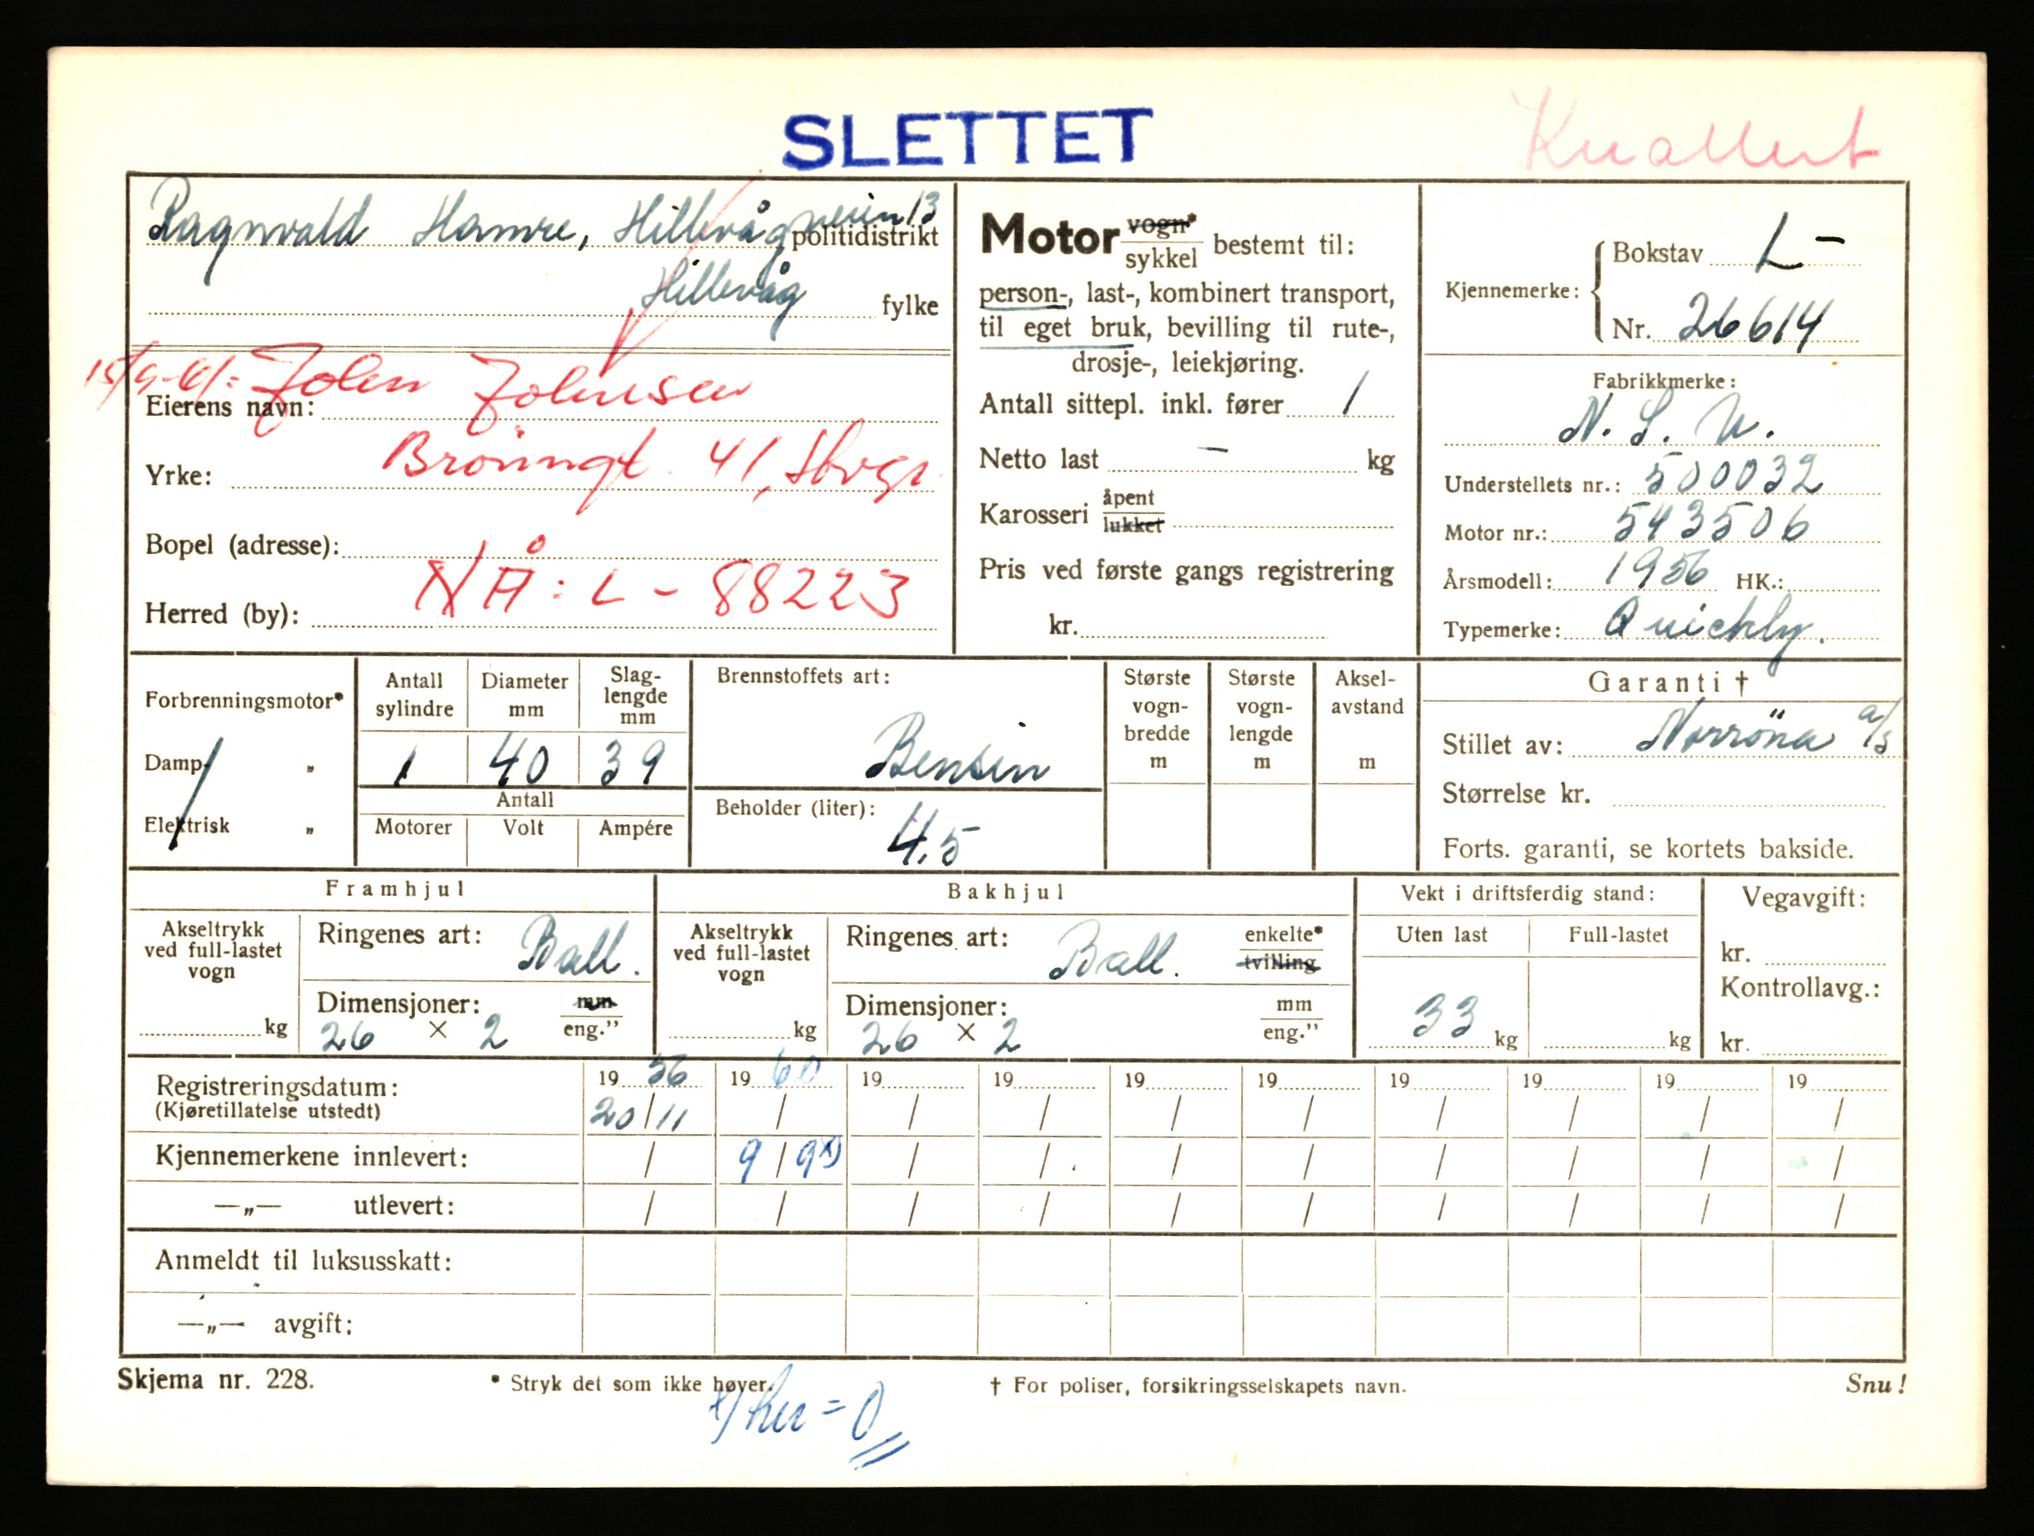 SLETTET
Knallert
Ragnvald Hamre, Hillevågveien 13
politidistrikt
Hillevåg
fylke
15/9-61: John Johnsen
Eierens navn:
Yrke: 41, Stvgr.
Bopel (adresse):
NÅ: L - 88223
Herred (by):
Motor vogn*
sykkel bestemt til:
person-, last-, kombinert transport,
til eget bruk, bevilling til rute-,
drosje-, leiekjøring.
Antall sittepl. inkl. fører 1
Netto last - kg
Karosseri åpent
lukket
Pris ved første gangs registrering
kr.
Kjennemerke: Bokstav L-
Nr. 26614
Fabrikkmerke:
N. S. U.
Understellets nr.: 500032
Motor nr.: 543506
Årsmodell: 1956 HK.:
Typemerke: Quickly.
Forbrenningsmotor*
Damp- "
Elektrisk "
Antall sylindre
Diameter mm
Slag-lengde mm
1 40 39
Antall
Motorer Volt Ampére
Brennstoffets art:
Bensin
Beholder (liter):
4,5
Største vogn-bredde m
Største vogn-lengde m
Aksel-avstand m
Garanti †
Stillet av: Norröna a/s
Størrelse kr.
Forts. garanti, se kortets bakside.
Framhjul
Akseltrykk ved full-lastet vogn
kg
Ringenes art: Ball.
Dimensjoner: mm
26 × 2 eng."
Bakhjul
Akseltrykk ved full-lastet vogn
kg
Ringenes art: Ball. enkelte*
tvilling
Dimensjoner: mm
26 × 2 eng."
Vekt i driftsferdig stand:
Uten last Full-lastet
33 kg kg
Vegavgift:
kr.
Kontrollavg.:
kr.
Registreringsdatum: 19 56 19 60 19 19 19 19 19 19 19 19
(Kjøretillatelse utstedt) 20/11 / / / / / / / / /
Kjennemerkene innlevert: / 9/9 x) / / / / / / / /
—„— utlevert: / / / / / / / / / /
Anmeldt til luksusskatt:
—„— avgift:
Skjema nr. 228.
* Stryk det som ikke høyer.
† For poliser, forsikringsselskapets navn.
Snu!
x) her = 0